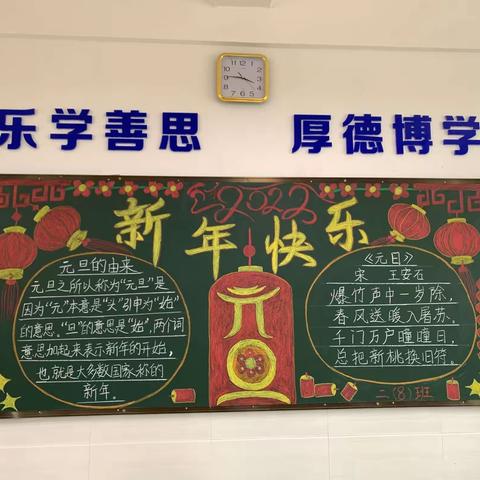 乐学善思 厚德博学
2022
新年快乐
元旦的由来
元旦之所以称为"元旦"是
因为"元"本意是"头"引申为"始"
的意思,"旦"的意思是"始",两个词
意思加起来表示新年的开始,
也就是大多数国家称的
新年。
元旦
《元日》
宋 王安石
爆竹声中一岁除,
春风送暖入屠苏、
千门万户曈曈日,
总把新桃换旧符。
二(8)班